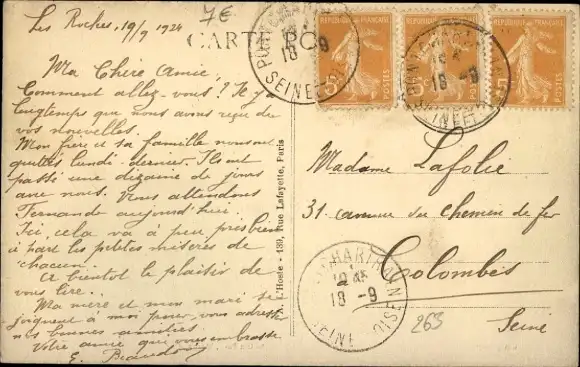 Les Roches, 19/9 1924
7€
CARTE PO
Ma Chère Amie,
Comment allez-vous? Il y a
longtemps que nous avons reçu de
vos nouvelles.
Mon frère et sa famille nous ont
quittés lundi dernier. Ils ont
passé une dizaine de jours
avec nous. Nous attendons
Fernande aujourd'hui.
Ici, cela va à peu près bien
à part les petites misères de
chacun.
A bientôt le plaisir de
vous lire.
Ma mère et mon mari se
joignent à moi pour vous adresser
nos bonnes amitiés.
Votre amie qui vous embrasse
E.
L'Hoste - 139, Rue Lafayette, Paris
REPUBLIQUE FRANÇAISE
REPUBLIQUE FRANÇAISE
REPUBLIQUE FRANÇAISE
5c
POSTES
18 -9
SEINE
18 -9
SEINE
18 -9
SEINE
Madame Lafolie
31 avenue du chemin de fer
Colombes
Seine
263